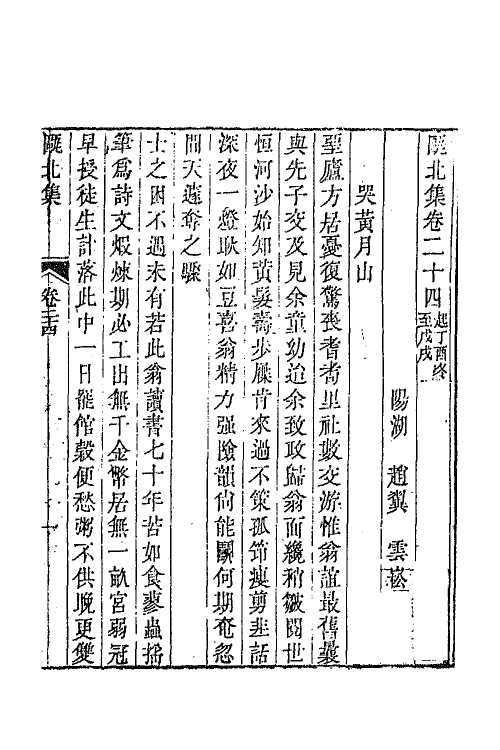 甌北集卷二十四起丁酉終至戊戌
陽湖 趙翼 雲崧
哭黃月山
堊廬方居憂復驚喪耆耇里社數交游惟翁誼最舊曩
與先子交及見余童幼迨余致政歸翁面纔稍皺閱世
恒河沙始知黃髮壽步屧肯來過不策孤筇瘦剪韭話
深夜一燈耿如豆喜翁精力强險韻尙能鬭何期奄忽
間天遽奪之驟
士之困不遇未有若此翁讀書七十年苦如食蓼蟲搖
筆爲詩文煆煉期必工出無千金幣居無一畝宮弱冠
早授徒生計落此中一日罷館穀便愁粥不供晚更雙
甌北集
卷二十四
一